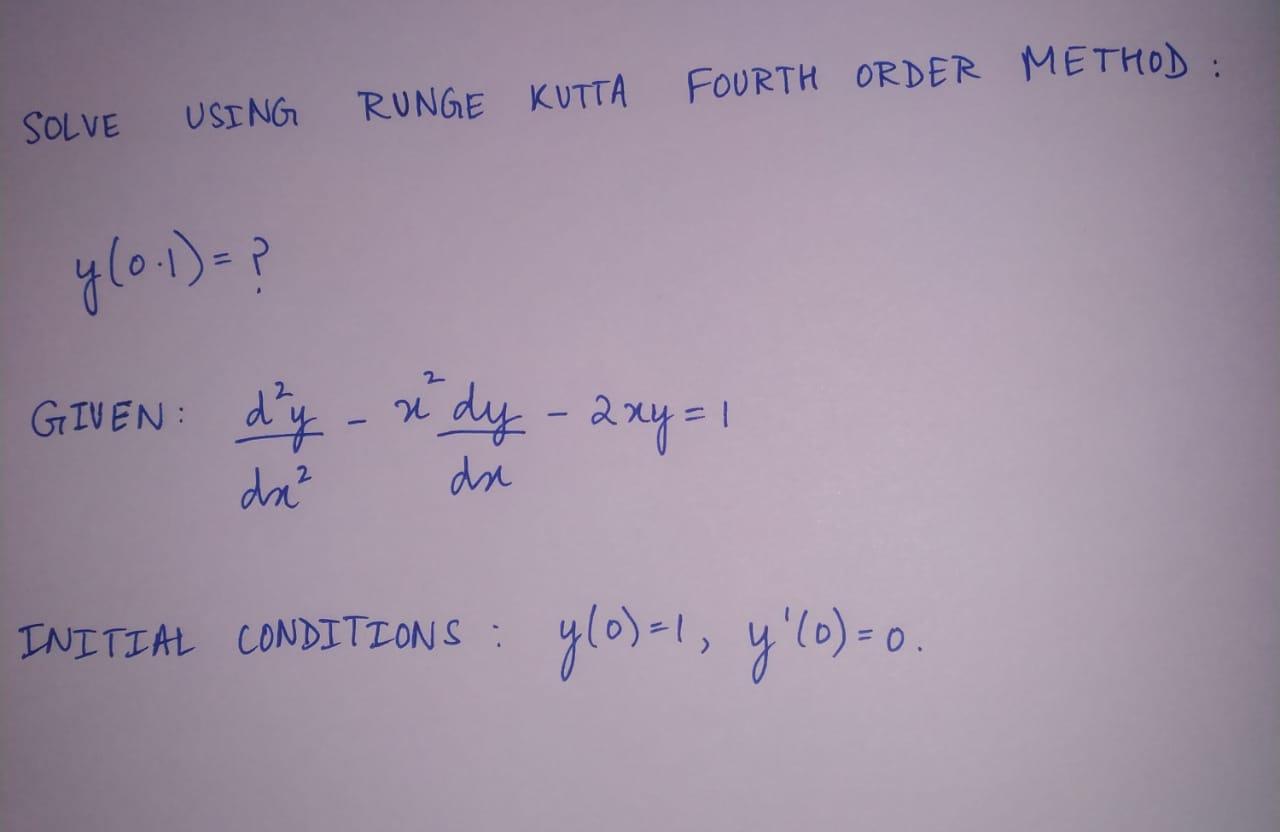 SOLVE USING RUNGE KUTTA FOURTH ORDER METHOD :
y(0.1) = ?
GIVEN : d²y/dx² - x² dy/dx - 2xy = 1
INITIAL CONDITIONS : y(0)=1, y'(0)=0.